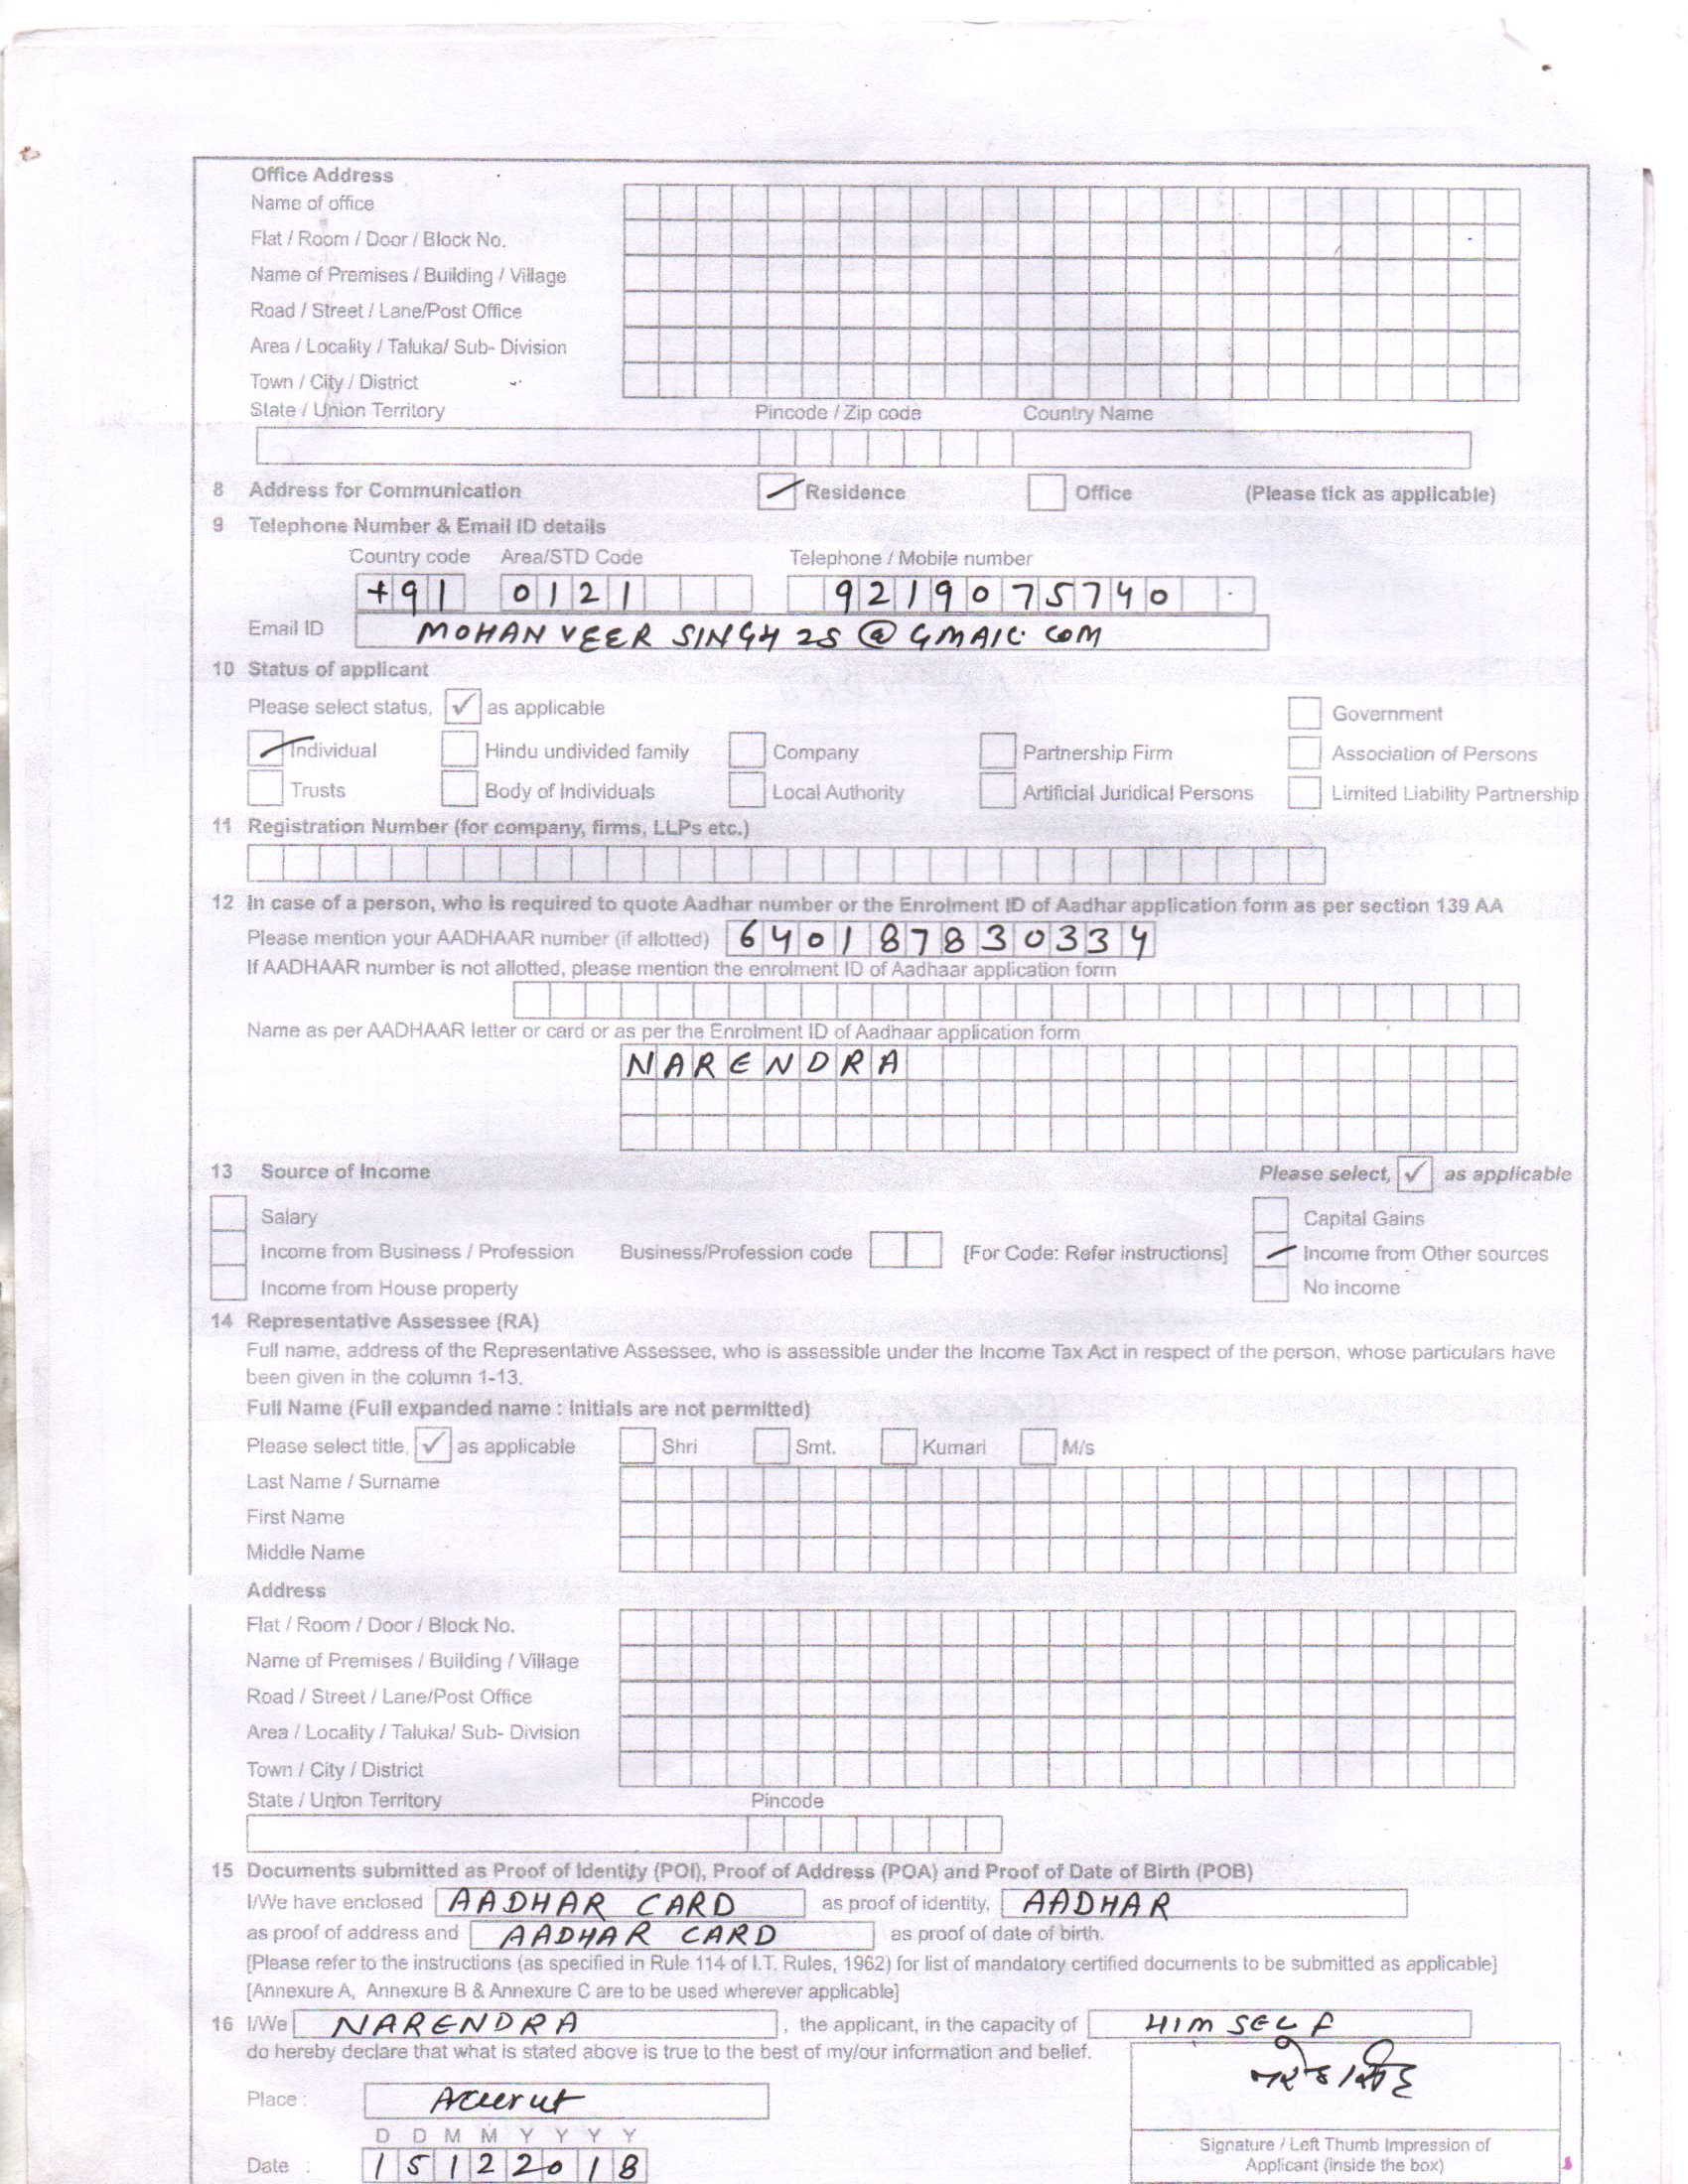 Office Address
Name of office
Flat / Room / Door / Block No.
Name of Premises / Building / Village
Road / Street / Lane/Post Office
Area / Locality / Taluka/ Sub- Division
Town / City / District
State / Union Territory Pincode / Zip code Country Name
8 Address for Communication Residence Office (Please tick as applicable)
9 Telephone Number & Email ID details
Country code Area/STD Code Telephone / Mobile number
+91 0121 9219075740
Email ID MOHANVEER SINGH 25 @ GMAIL. COM
10 Status of applicant
Please select status, ✓ as applicable Government
Individual Hindu undivided family Company Partnership Firm Association of Persons
Trusts Body of Individuals Local Authority Artificial Juridical Persons Limited Liability Partnership
11 Registration Number (for company, firms, LLPs etc.)
12 In case of a person, who is required to quote Aadhar number or the Enrolment ID of Aadhar application form as per section 139 AA
Please mention your AADHAAR number (if allotted) 640187830334
If AADHAAR number is not allotted, please mention the enrolment ID of Aadhaar application form
Name as per AADHAAR letter or card or as per the Enrolment ID of Aadhaar application form
NARENDRA
13 Source of Income Please select, ✓ as applicable
Salary Capital Gains
Income from Business / Profession Business/Profession code [For Code: Refer instructions] Income from Other sources
Income from House property No income
14 Representative Assessee (RA)
Full name, address of the Representative Assessee, who is assessible under the Income Tax Act in respect of the person, whose particulars have
been given in the column 1-13.
Full Name (Full expanded name : initials are not permitted)
Please select title, ✓ as applicable Shri Smt. Kumari M/s
Last Name / Surname
First Name
Middle Name
Address
Flat / Room / Door / Block No.
Name of Premises / Building / Village
Road / Street / Lane/Post Office
Area / Locality / Taluka/ Sub- Division
Town / City / District
State / Union Territory Pincode
15 Documents submitted as Proof of Identity (POI), Proof of Address (POA) and Proof of Date of Birth (POB)
I/We have enclosed AADHAR CARD as proof of identity, AADHAR
as proof of address and AADHAR CARD as proof of date of birth.
[Please refer to the instructions (as specified in Rule 114 of I.T. Rules, 1962) for list of mandatory certified documents to be submitted as applicable]
[Annexure A, Annexure B & Annexure C are to be used wherever applicable]
16 I/We NARENDRA , the applicant, in the capacity of HIMSELF
do hereby declare that what is stated above is true to the best of my/our information and belief.
Place :
D D M M Y Y Y Y
Date : 15122018
Signature / Left Thumb Impression of
Applicant (inside the box)